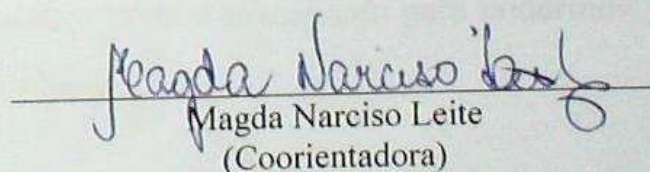 Magda Narciso Leite
Magda Narciso Leite
(Coorientadora)